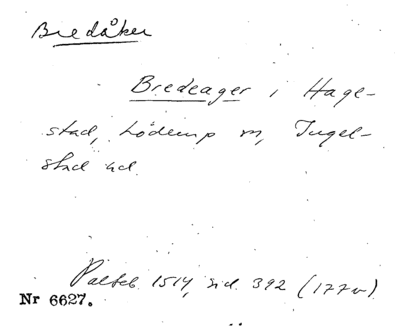 Bredåker
Bredeager i Hage-
stad, Löderup sn, Ingel-
stad hd.
Palteb. 1514, sid. 392 (177v)
Nr 6627.